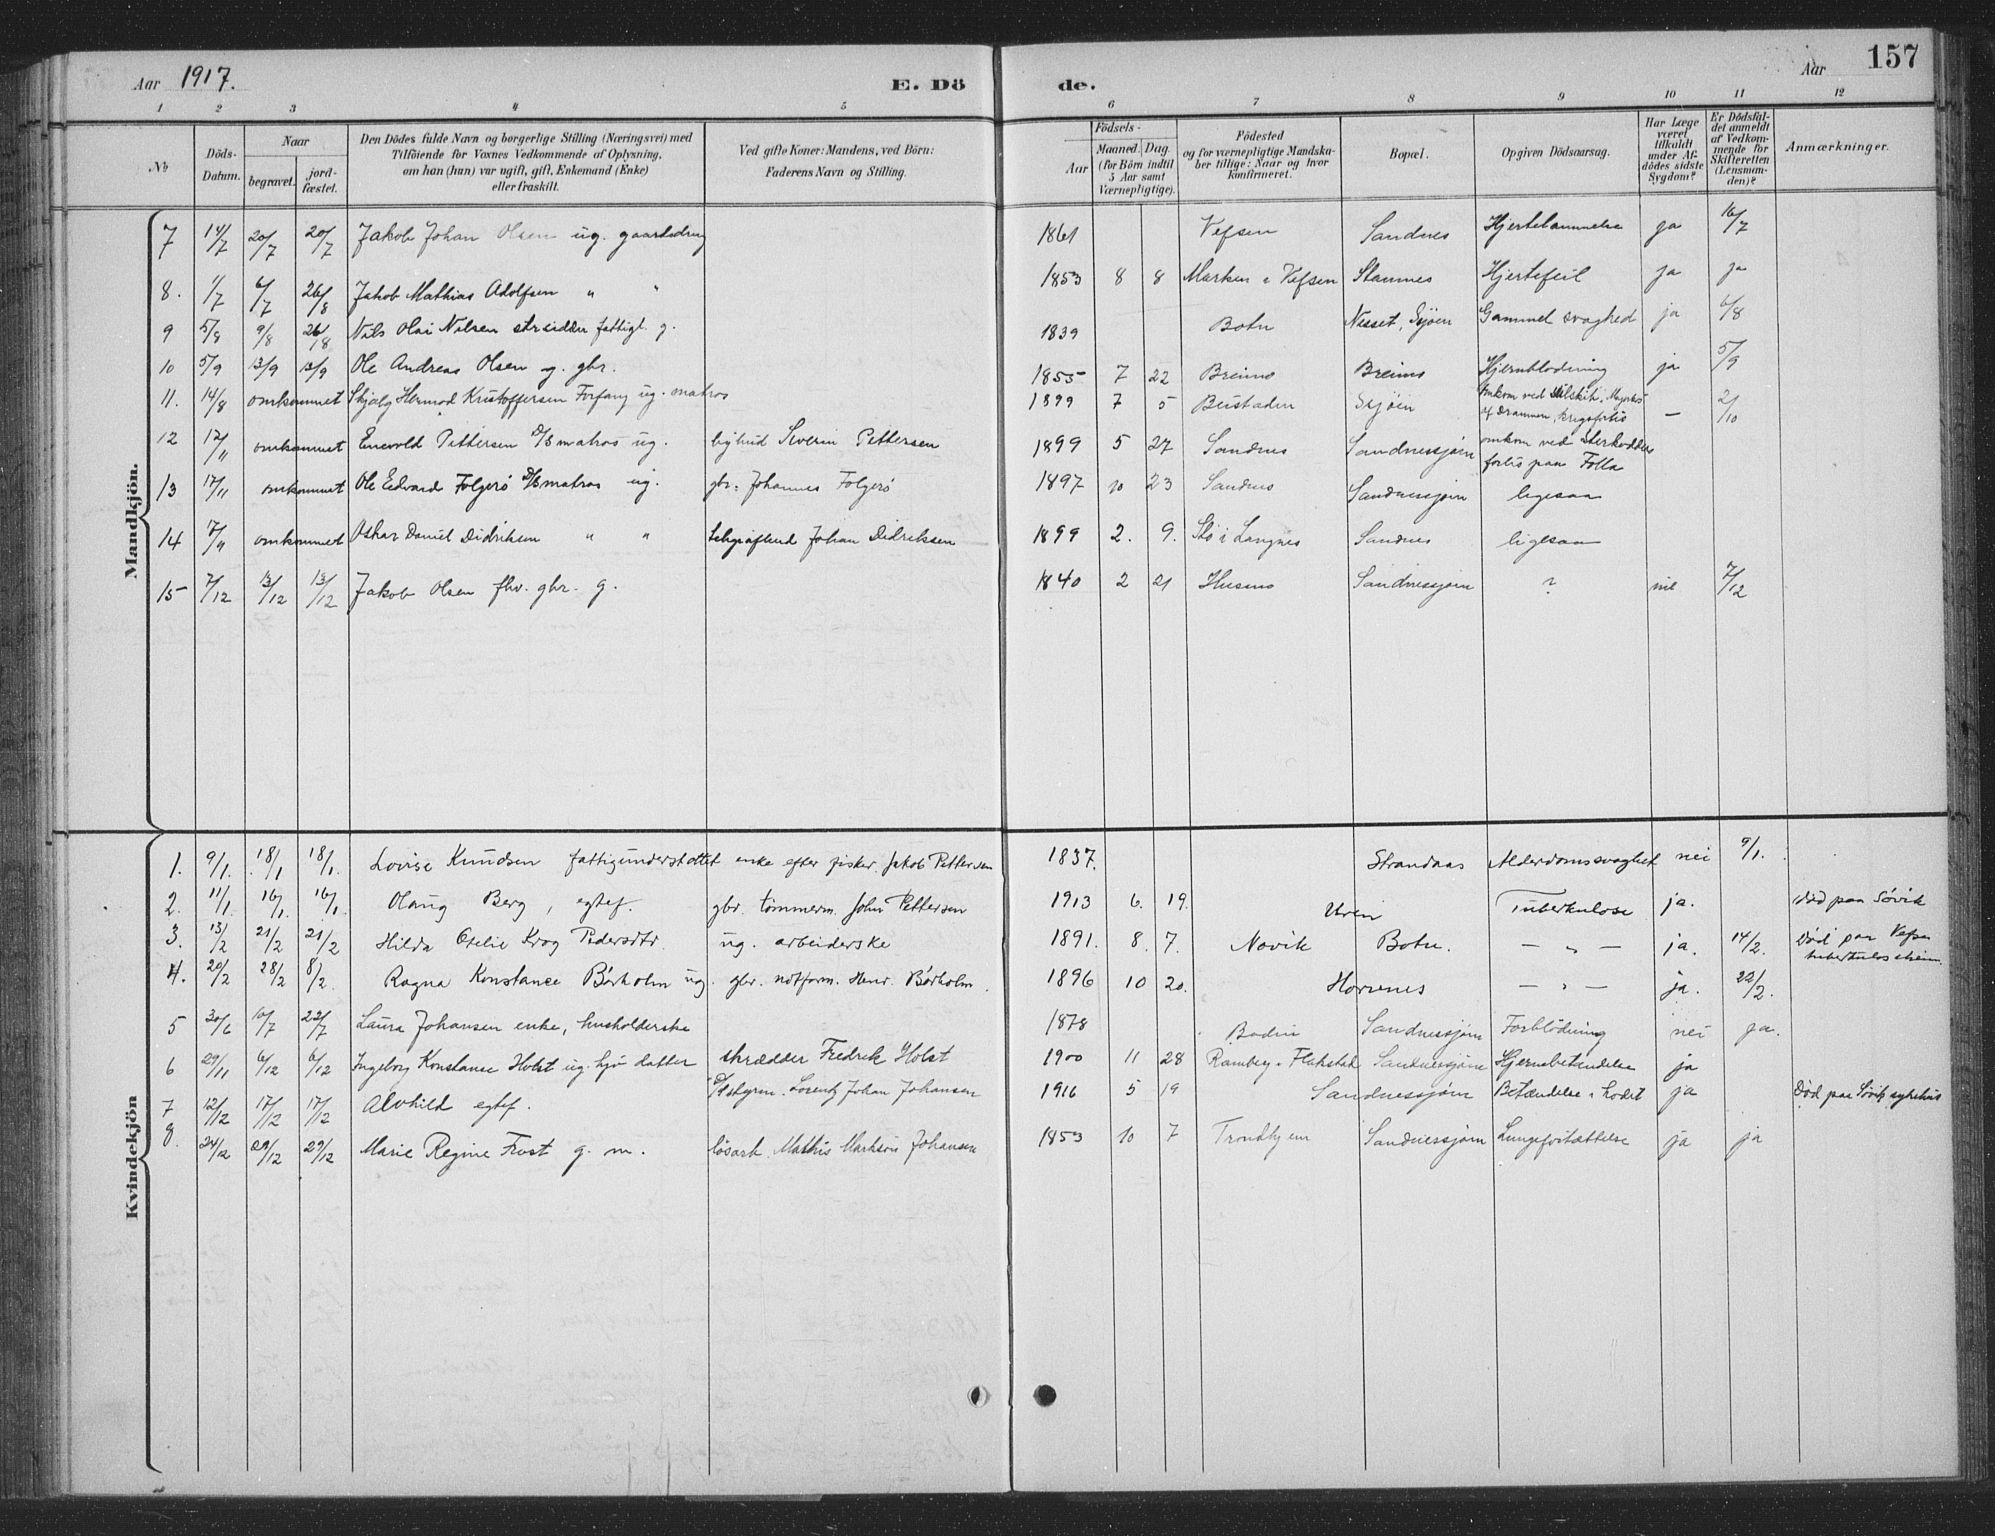 Aar 1917.
E. Dö
de.
Aar
157
1 2 3 4 5 6 7 8 9 10 11 12
No
Döds-Datum.
Naar
begravet.
jord-fæstet.
Den Dödes fulde Navn og borgerlige Stilling (Næringsvei) med
Tilföiende for Voxnes Vedkommende af Oplysning,
om han (hun) var ugift, gift, Enkemand (Enke)
eller fraskilt.
Ved gifte Koner: Mandens, ved Börn:
Faderens Navn og Stilling.
Födsels-
Aar
Maaned. Dag.
(for Börn indtil
5 Aar samt
Værnepligtige).
Födested
og for værnepligtige Mandska-
ber tillige: Naar og hvor
konfirmeret.
Bopæl.
Opgiven Dödsaarsag.
Har Læge
været
tilkaldt
under Af-
dödes sidste
Sygdom?
Er Dödsfal-
det anmeldt
af Vedkom-
mende for
Skifteretten
(Lensman-
den)?
Anmærkninger.
Mandkjön.
7 14/7 20/7 20/7 Jakob Johan Olsen ug. 1861 Vefsen Sandnes Hjertelammelse ja 16/7
8. 1/7 6/7 26/8 Jakob Mathias Adolfsen " " 1853 8 8 Marken i Vefsen Stamnes Hjertefeil ja ja
9 5/8 9/8 26/8 Nils Olai Nilsen strsidder fattigl. g. 1839 Botn Nesset, Sjöen Gammel svaghed ja 6/8
10 5/9 13/9 13/9 Ole Andreas Olsen g. gbr. 1855 7 22 Breimo Breimo Hjerneblödning ja 5/9
11. 14/8 omkommet Skjalg Hermod Kristoffersen Forfang ug. matros 1899 7 5 Bustaden Sjöen omkom ved
af Drammen, krigsforlis — 2/10
12 17/11 omkommet Enevold Pettersen D/S matros ug. Severin Pettersen 1899 5 27 Sandnes Sandnessjöen omkom ved Sterkodders
forlis paa Folla
13 17/11 omkommet Ole Edvard Folgerö D/S matros ug. gbr. Johannes Folgerö 1897 10 23 Sandnes Sandnessjöen ligesaa
14 17/11 omkommet Oskar Daniel Didriksen " " Johan Didriksen 1899 2. 9. Stö i Langnes Sandnes ligesaa
15 7/12 13/12 13/12 Jakob Olsen fhv. gbr. g. 1840 2 21 Husmo Sandnessjöen ? nei 7/12
Kvindekjön
1. 9/1. 18/1 18/1. Lovise Knudsen fattigunderstöttet enke efter fisker Jakob Pettersen 1837. Strandaas Alderdomssvaghet nei 9/1.
2. 11/1. 16/1. 16/1. Olaug Berg, egtef. gbr. tömmerm. John Pettersen 1913 6. 19. Uren Tuberkulose ja. död paa Sövik
3. 13/2 21/2 21/2 Hilda Otelie Krog Pedersdtr. ug. arbeiderske 1891. 8. 7. Novik Botn. — " — ja. 14/2. Död paa Vefsn
tuberkuloseheim.
4. 20/2 28/2 8/2. Ragna Konstance Börholm ug. gbr. notform. Henr. Börholm. 1896 10 20. Horvnes — " — ja. 22/2.
5 30/6 10/7 22/7 Laura Johansen enke, husholderske 1878 Bodin Sandnessjöen Forblödning nei ja.
6 29/11 6/12 6/12 Ingeborg Konstanse Holst ug. hjv datter skrædder Fredrik Holst 1900 11 28 Ramberg i Flakstad Sandnessjöen Hjernebetændelse ja
7 12/12 17/12 17/12 Alvhild egtef. D/S styrm. Lorentz Johan Johansen 1916 5 19 Sandnessjöen Betændelse i hodet ja Död paa Sövik sykehus
8. 24/12 29/12 29/12 Marie Regine Frost g. m. lösarb. Mathis Johansen 1853 10 7 Trondhjem Sandnessjöen Lungefortættelse ja ja